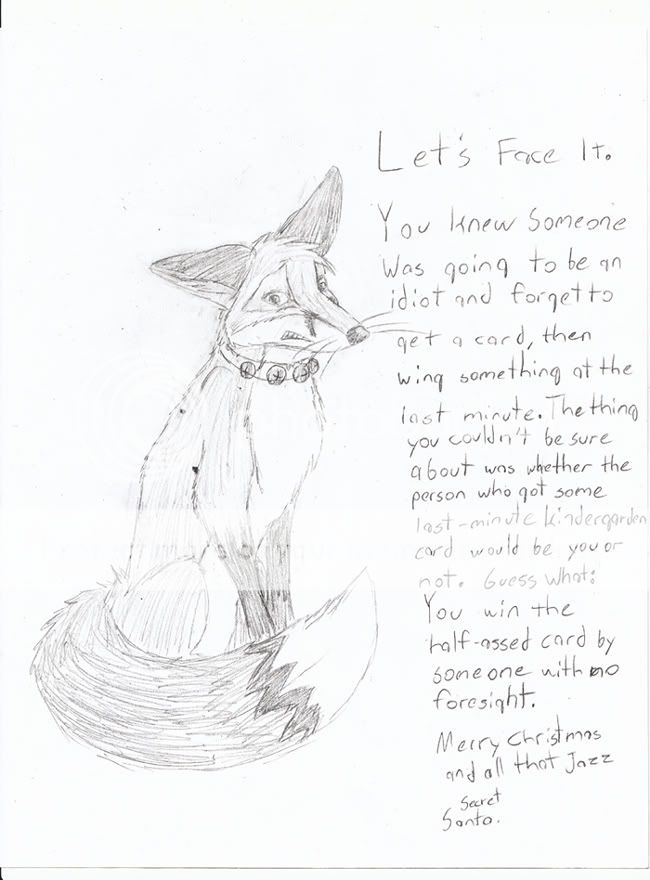 Let's Face It.
You knew Someone
was going to be an
idiot and forget to
get a card, then
wing something at the
last minute. The thing
you couldn't be sure
about was whether the
person who got some
last-minute kindergarden
card would be you or
not. Guess what:
You win the
half-assed card by
someone with no
foresight.
Merry Christmas
and all that Jazz
Secret
Santa.